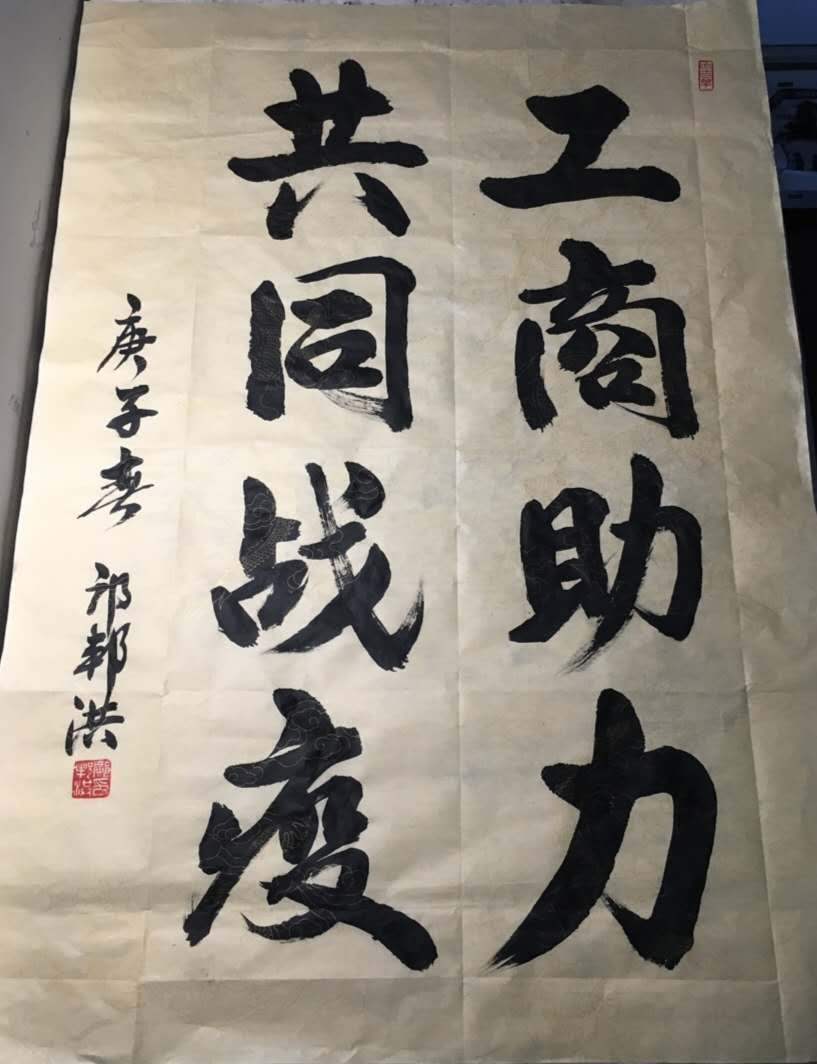 工商助力
共同战疫
庚子春 邝邦洪